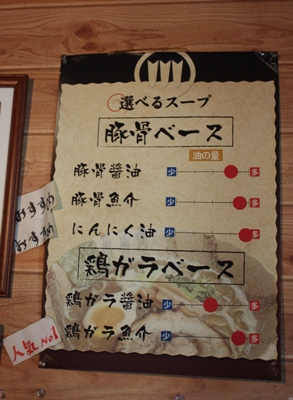 選べるスープ
豚骨ベース
油の量
豚骨醤油 少 多
おすすめ 豚骨魚介 少 多
おすすめ にんにく油 少 多
鶏ガラベース
鶏ガラ醤油 少 多
人気No1 鶏ガラ魚介 少 多